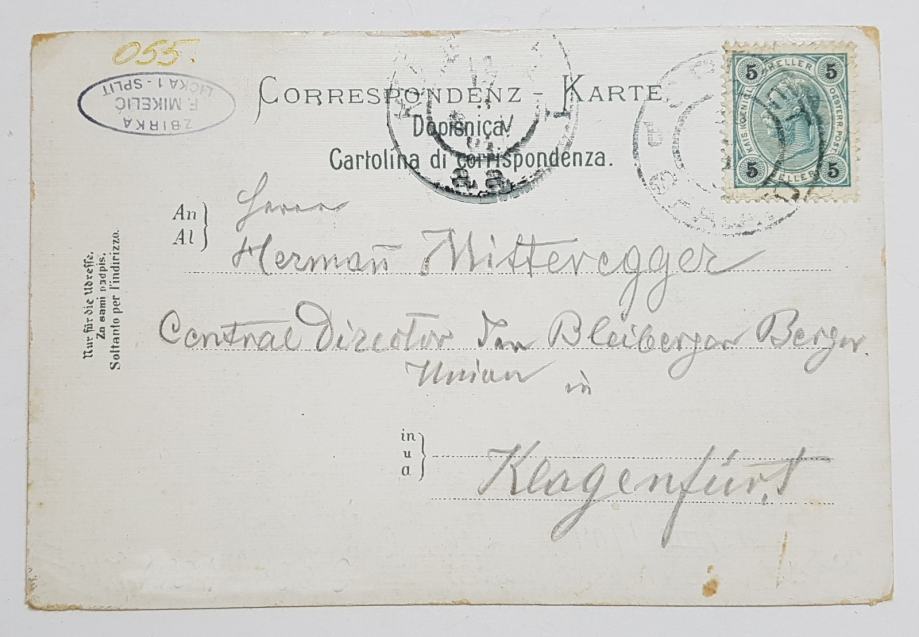 055.
ZBIRKA
F. MIKELIĆ
LIČKA 1 - SPLIT
CORRESPONDENZ - KARTE
Dopisnica/
Cartolina di corrispondenza.
5 HELLER 5
KAIS. KOENIGL. OESTERR. POST
5 HELLER 5
An
Al
Herrn
Hermañ Mitteregger
Central Director Bleiberger Berger.
Union in
in
u
a
Klagenfurt
Nur für die Adresse.
Za sami nadpis.
Soltanto per l'indirizzo.